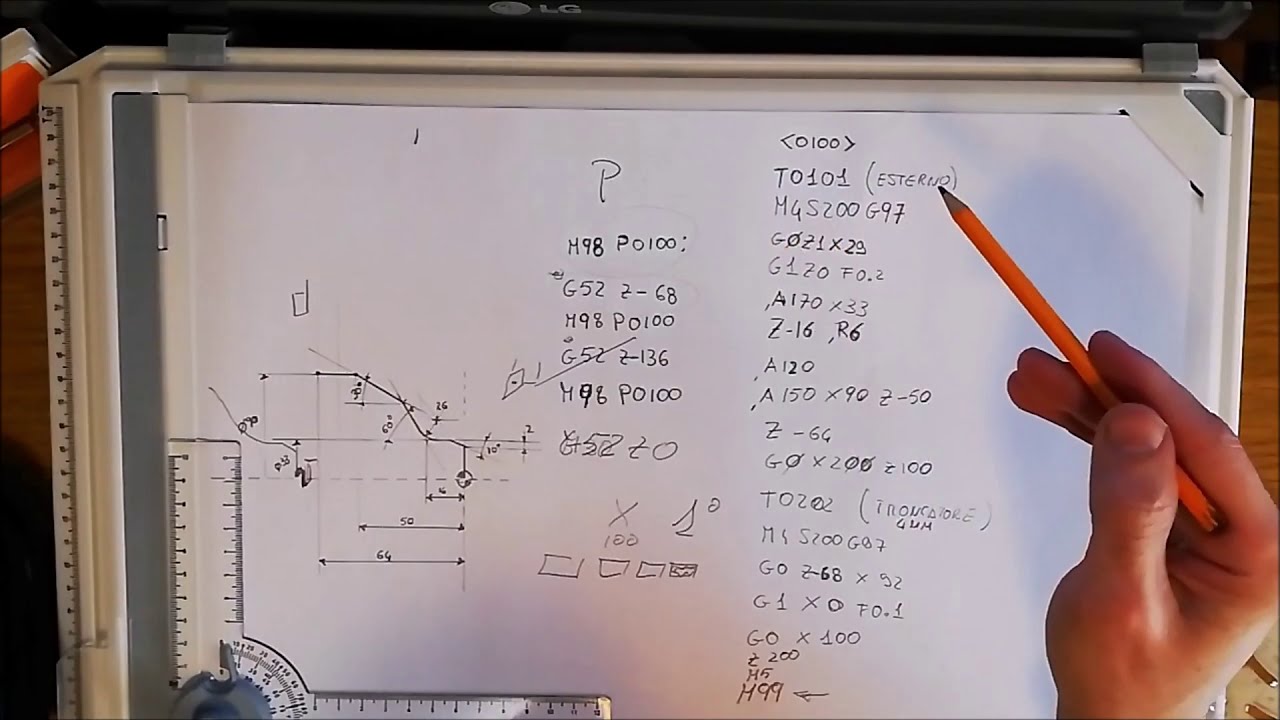 LG
P
M98 P0100;
G52 Z-68
M98 P0100
G52 Z-136
M98 P0100
G52 Z0
X 1°
100
<O100>
T0101 (ESTERNO)
M4S200G97
GØZ1X29
G1Z0 F0.2
,A170 X33
Z-16 ,R6
,A120
,A150 X90 Z-50
Z-64
GØ X200 Z100
T0202 (TRONCATORE)
4MM
M4 S200G97
G0 Z-68 X 92
G1 X0 F0.1
G0 X100
Z200
M5
M99
30°
60°
Ø90
Ø33
2
10°
50
64